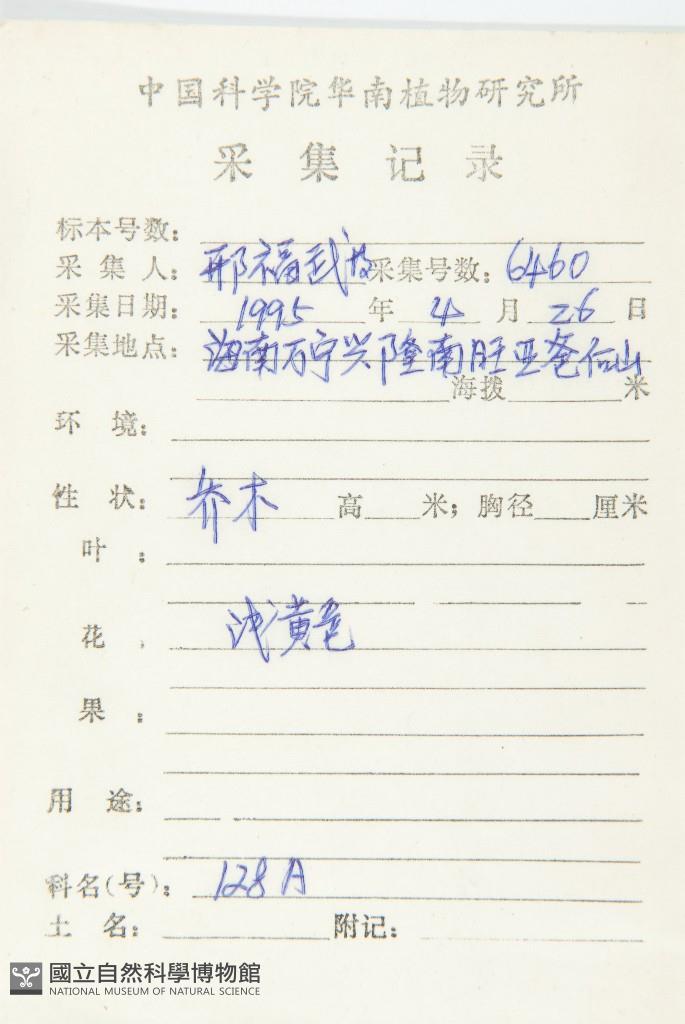 中国科学院华南植物研究所
采集记录
标本号数:
采集人: 邢福武 采集号数: 6460
采集日期: 1995 年 4 月 26 日
采集地点: 海南万宁兴隆南旺亚爸仙山
海拨 米
环境:
性状: 乔木 高 米; 胸径 厘米
叶:
花: 浅黄色
果:
用途:
科名(号): 128A
土名: 附记:
國立自然科學博物館
NATIONAL MUSEUM OF NATURAL SCIENCE